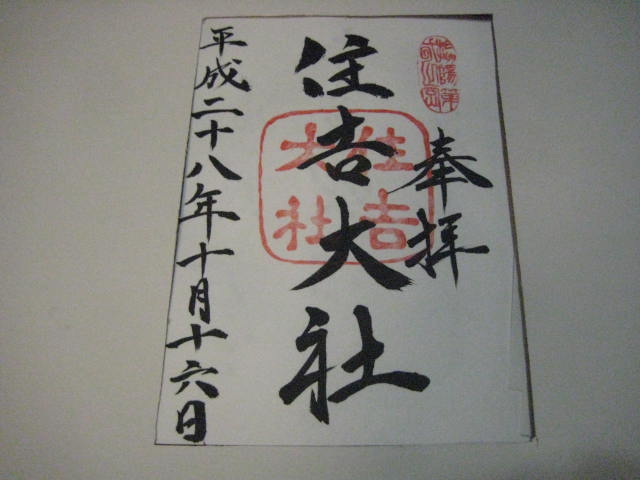 奉拝
住吉大社
住吉
大社
平成二十八年十月十六日